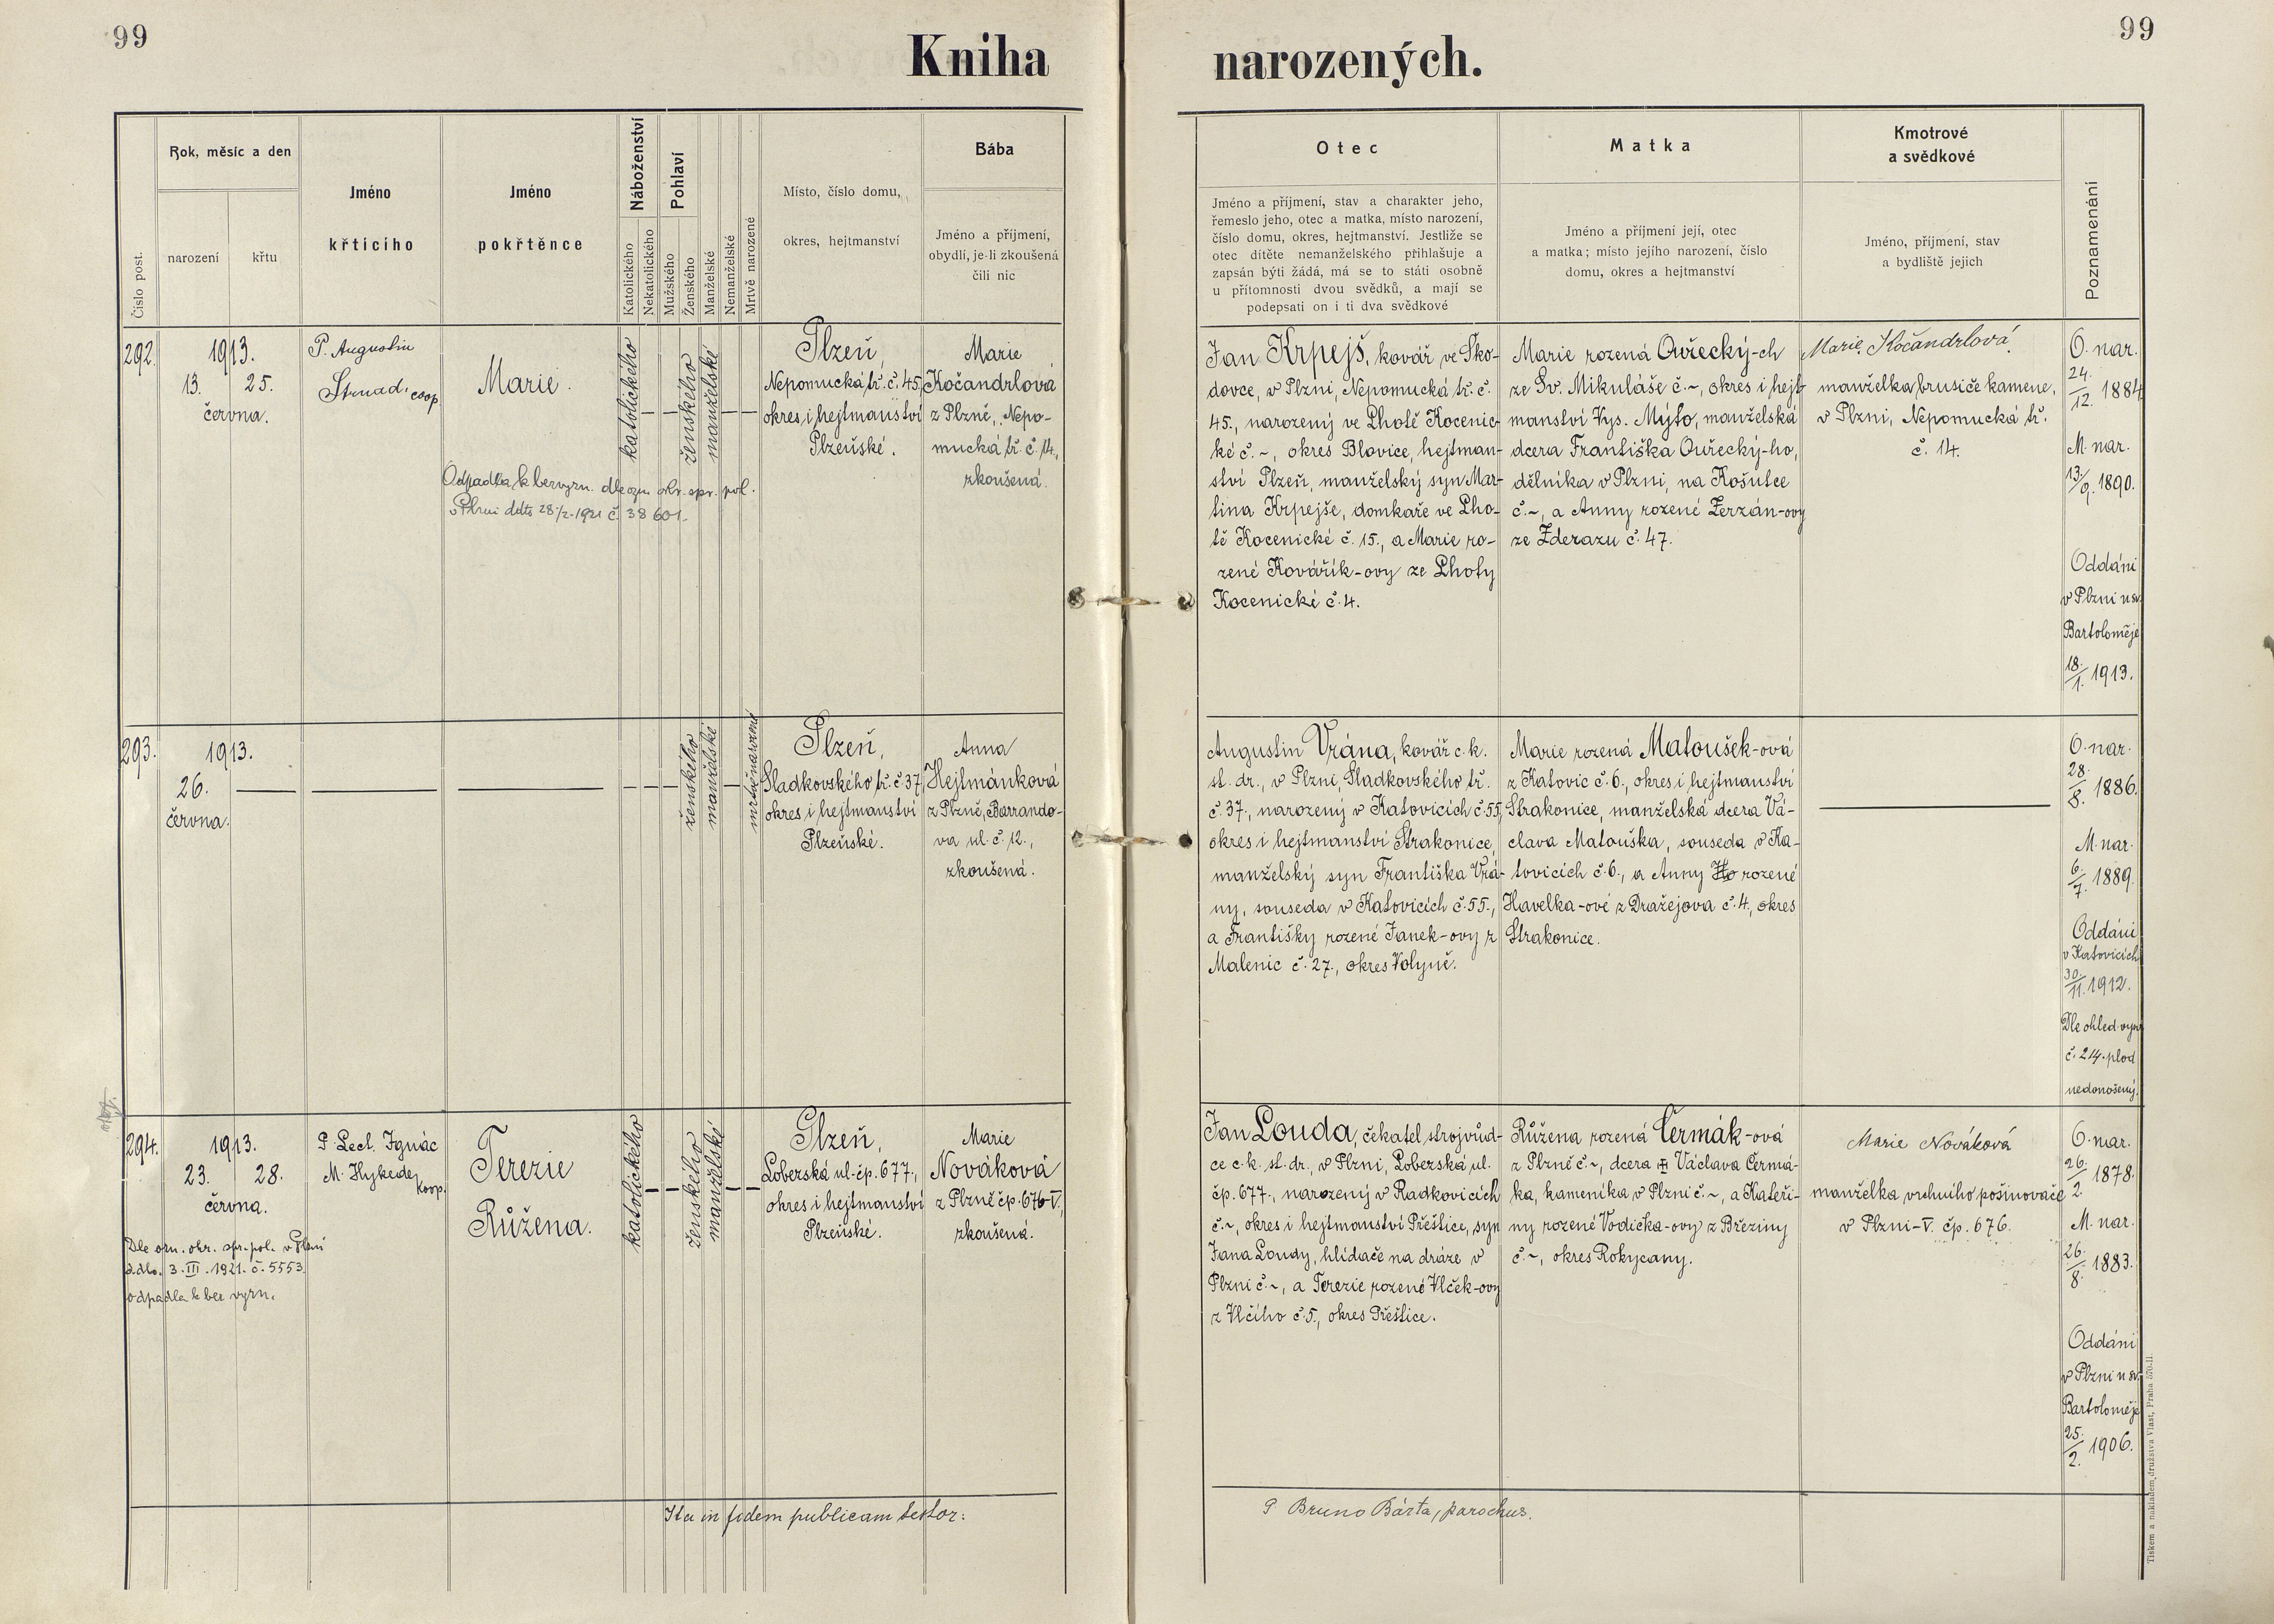 99
Kniha
narozených.
99
Číslo post.
Rok, měsíc a den
narození
křtu
Jméno
křticího
Jméno
pokřtěnce
Náboženství
Katolického
Nekatolického
Pohlaví
Mužského
Ženského
Manželské
Nemanželské
Mrtvě narozené
Místo, číslo domu,
okres, hejtmanství
Bába
Jméno a příjmení,
obydlí, je-li zkoušená
čili nic
Otec
Jméno a příjmení, stav a charakter jeho,
řemeslo jeho, otec a matka, místo narození,
číslo domu, okres, hejtmanství. Jestliže se
otec dítěte nemanželského přihlašuje a
zapsán býti žádá, má se to státi osobně
u přítomnosti dvou svědků, a mají se
podepsati on i ti dva svědkové
Matka
Jméno a příjmení její, otec
a matka; místo jejího narození, číslo
domu, okres a hejtmanství
Kmotrové
a svědkové
Jméno, příjmení, stav
a bydliště jejich
Poznamenání
292.
1913.
13. 25.
června.
P. Augustin
Strnad, coop.
Marie.
katolického
ženského
manželské
Plzeň,
Nepomucká tř. č. 45,
okres i hejtmanství
Plzeňské.
Marie
Kočandrlová
z Plzně, Nepo-
mucká tř. č. 14.,
zkoušená.
Odpadla k bezvyzn. dle ozn. okr. spr. pol.
v Plzni dtto 28/2.1921 č. 38 601.
Jan Krpejš, kovář ve Ško-
dovce, v Plzni, Nepomucká tř. č.
45., narozený ve Lhotě Kocenic-
ké č. ~, okres Blovice, hejtman-
ství Plzeň, manželský syn Mar-
tina Krpejše, domkaře ve Lho-
tě Kocenické č. 15., a Marie ro-
zené Kovářík-ovy ze Lhoty
Kocenické č. 4.
Marie rozená Ouřecký-ch
ze Sv. Mikuláše č. ~, okres i hejt-
manství Vys. Mýto, manželská
dcera Františka Ouřecký-ho,
dělníka v Plzni, na Košutce
č. ~, a Anny rozené Zerzán-ovy
ze Zderazu č. 47.
Marie Kočandrlová,
manželka brusiče kamene,
v Plzni, Nepomucká tř.
č. 14.
O. nar.
24./12. 1884
M. nar.
13/9. 1890.
Oddáni
v Plzni u sv.
Bartoloměje
18./1. 1913.
293.
1913.
26.
června.
ženského
manželské
mrtvě narozené
Plzeň,
Sladkovského tř. č. 37,
okres i hejtmanství
Plzeňské.
Anna
Hejtmánková
z Plzně, Barrando-
va ul. č. 12.,
zkoušená.
Augustin Vrána, kovář c. k.
st. dr., v Plzni, Sladkovského tř.
č. 37., narozený v Katovicích č. 55,
okres i hejtmanství Strakonice,
manželský syn Františka Vrá-
ny, souseda v Katovicích č. 55.,
a Františky rozené Janek-ovy z
Malenic č. 27., okres Volyně.
Marie rozená Matoušek-ová
z Katovic č. 6., okres i hejtmanství
Strakonice, manželská dcera Vá-
clava Matouška, souseda v Ka-
tovicích č. 6., a Anny Ho rozené
Havelka-ové z Dražejova č. 4., okres
Strakonice.
O. nar.
28./8. 1886.
M. nar.
6./7. 1889.
Oddáni
v Katovicích
30./11. 1912.
Dle ohled. vysv.
č. 214. plod
nedonošený.
294.
1913.
23. 28.
června.
P. Lect. Ignác
M. Hykede,
koop.
Terezie
Růžena.
katolického
ženského
manželské
Plzeň,
Loberská ul. čp. 677.,
okres i hejtmanství
Plzeňské.
Marie
Nováková
z Plzně čp. 676-V.,
zkoušená.
Dle ozn. okr. spr. pol. v Plzni
ddto. 3. III. 1921. č. 5553.
odpadla k bez vyzn.
Jan Louda, čekatel strojvůd-
ce c. k. st. dr., v Plzni, Loberská ul.
čp. 677., narozený v Radkovicích
č. ~, okres i hejtmanství Přeštice, syn
Jana Loudy, hlídače na dráze v
Plzni č. ~, a Terezie rozené Vlček-ovy
z Vlčího č. 5., okres Přeštice.
Růžena rozená Čermák-ová
z Plzně č. ~, dcera Václava Čermá-
ka, kameníka v Plzni č. ~, a Kateři-
ny rozené Vodička-ovy z Březiny
č. ~, okres Rokycany.
Marie Nováková
manželka vrchního pošinovače
v Plzni-V. čp. 676.
O. nar.
26./2. 1878.
M. nar.
26./8. 1883.
Oddáni
v Plzni u sv.
Bartoloměje
25./2. 1906.
Ita in fidem publicam testor:
P. Bruno Bárta, parochus.
Tiskem a nákladem družstva Vlast, Praha 570-II.